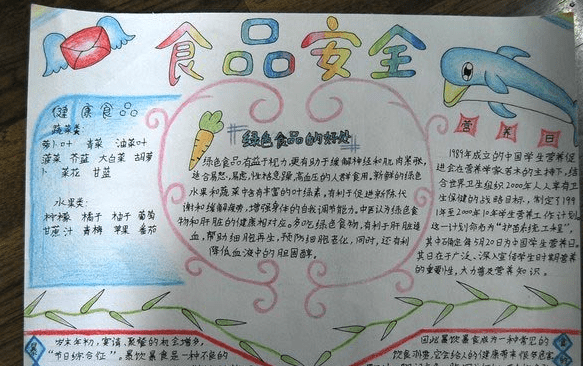 食品安全
健康食品
蔬菜类:
萝卜叶 青菜 油菜叶
菠菜 芥蓝 大白菜 胡萝
卜 菜花 甘蓝
水果类:
柠檬 橘子 柚子 葡萄
甘蔗汁 青梅 苹果 番茄
绿色食品的好处
绿色食品有益于视力,更有助于缓解神经和肌肉紧张,
适合易怒,易虑,性格急躁,高血压的人群食用,新鲜的绿色
水果和蔬菜中含有丰富的叶绿素,有利于促进新陈代
谢和缓解疲劳,增强身体的自我调节能力,中医认为绿色食
物和肝脏的健康相对应。多吃绿色食物,有利于肝脏造
血,帮助细胞再生,预防细胞老化,同时,还有利
降低血液中的胆固醇。
营养日
1989年成立的中国学生营养促
进会在营养学家 的主持下,结
合世界卫生组织2000年人人享有卫
生保健的战略目标,制定了199
1年至2000年10年学生营养工作计划
这一计划命名为“护苗系统工程”,
其中确定每5月20日为中国学生营养日。
其目在于广泛、深入宣传学时期营养
的重要性,大力普及营养知识。
岁末年初,宴请、聚餐的机会增多,
“节日综合征”。暴饮暴食是一种不良的
因此暴饮暴食成为一种常见的
饮食 ,它会给人的健康带来很多危害